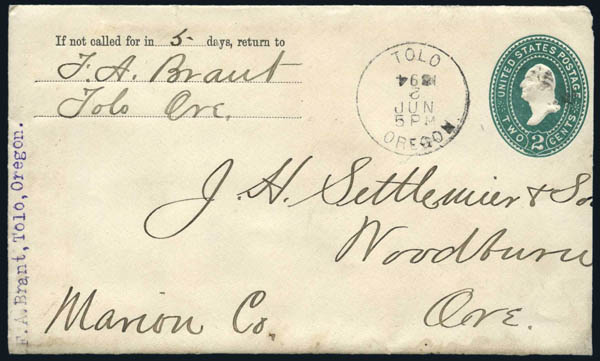 If not called for in 5 days, return to
F. A. Brant
Tolo Ore.
TOLO
JUN
5 PM
OREGON
UNITED STATES POSTAGE
TWO 2 CENTS
J. H. Settlemier & So
Woodburn
Marion Co. Ore.
F. A. Brant, Tolo, Oregon.